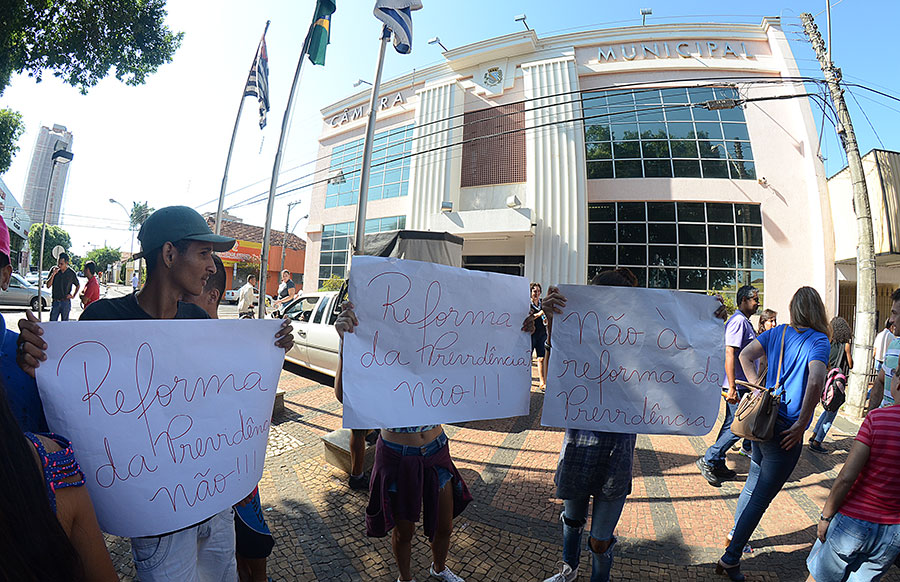 CÂMARA
MUNICIPAL
Reforma
da Previdência
não!!!
Reforma
da Previdência
não!!!
Não a
reforma da
Previdência